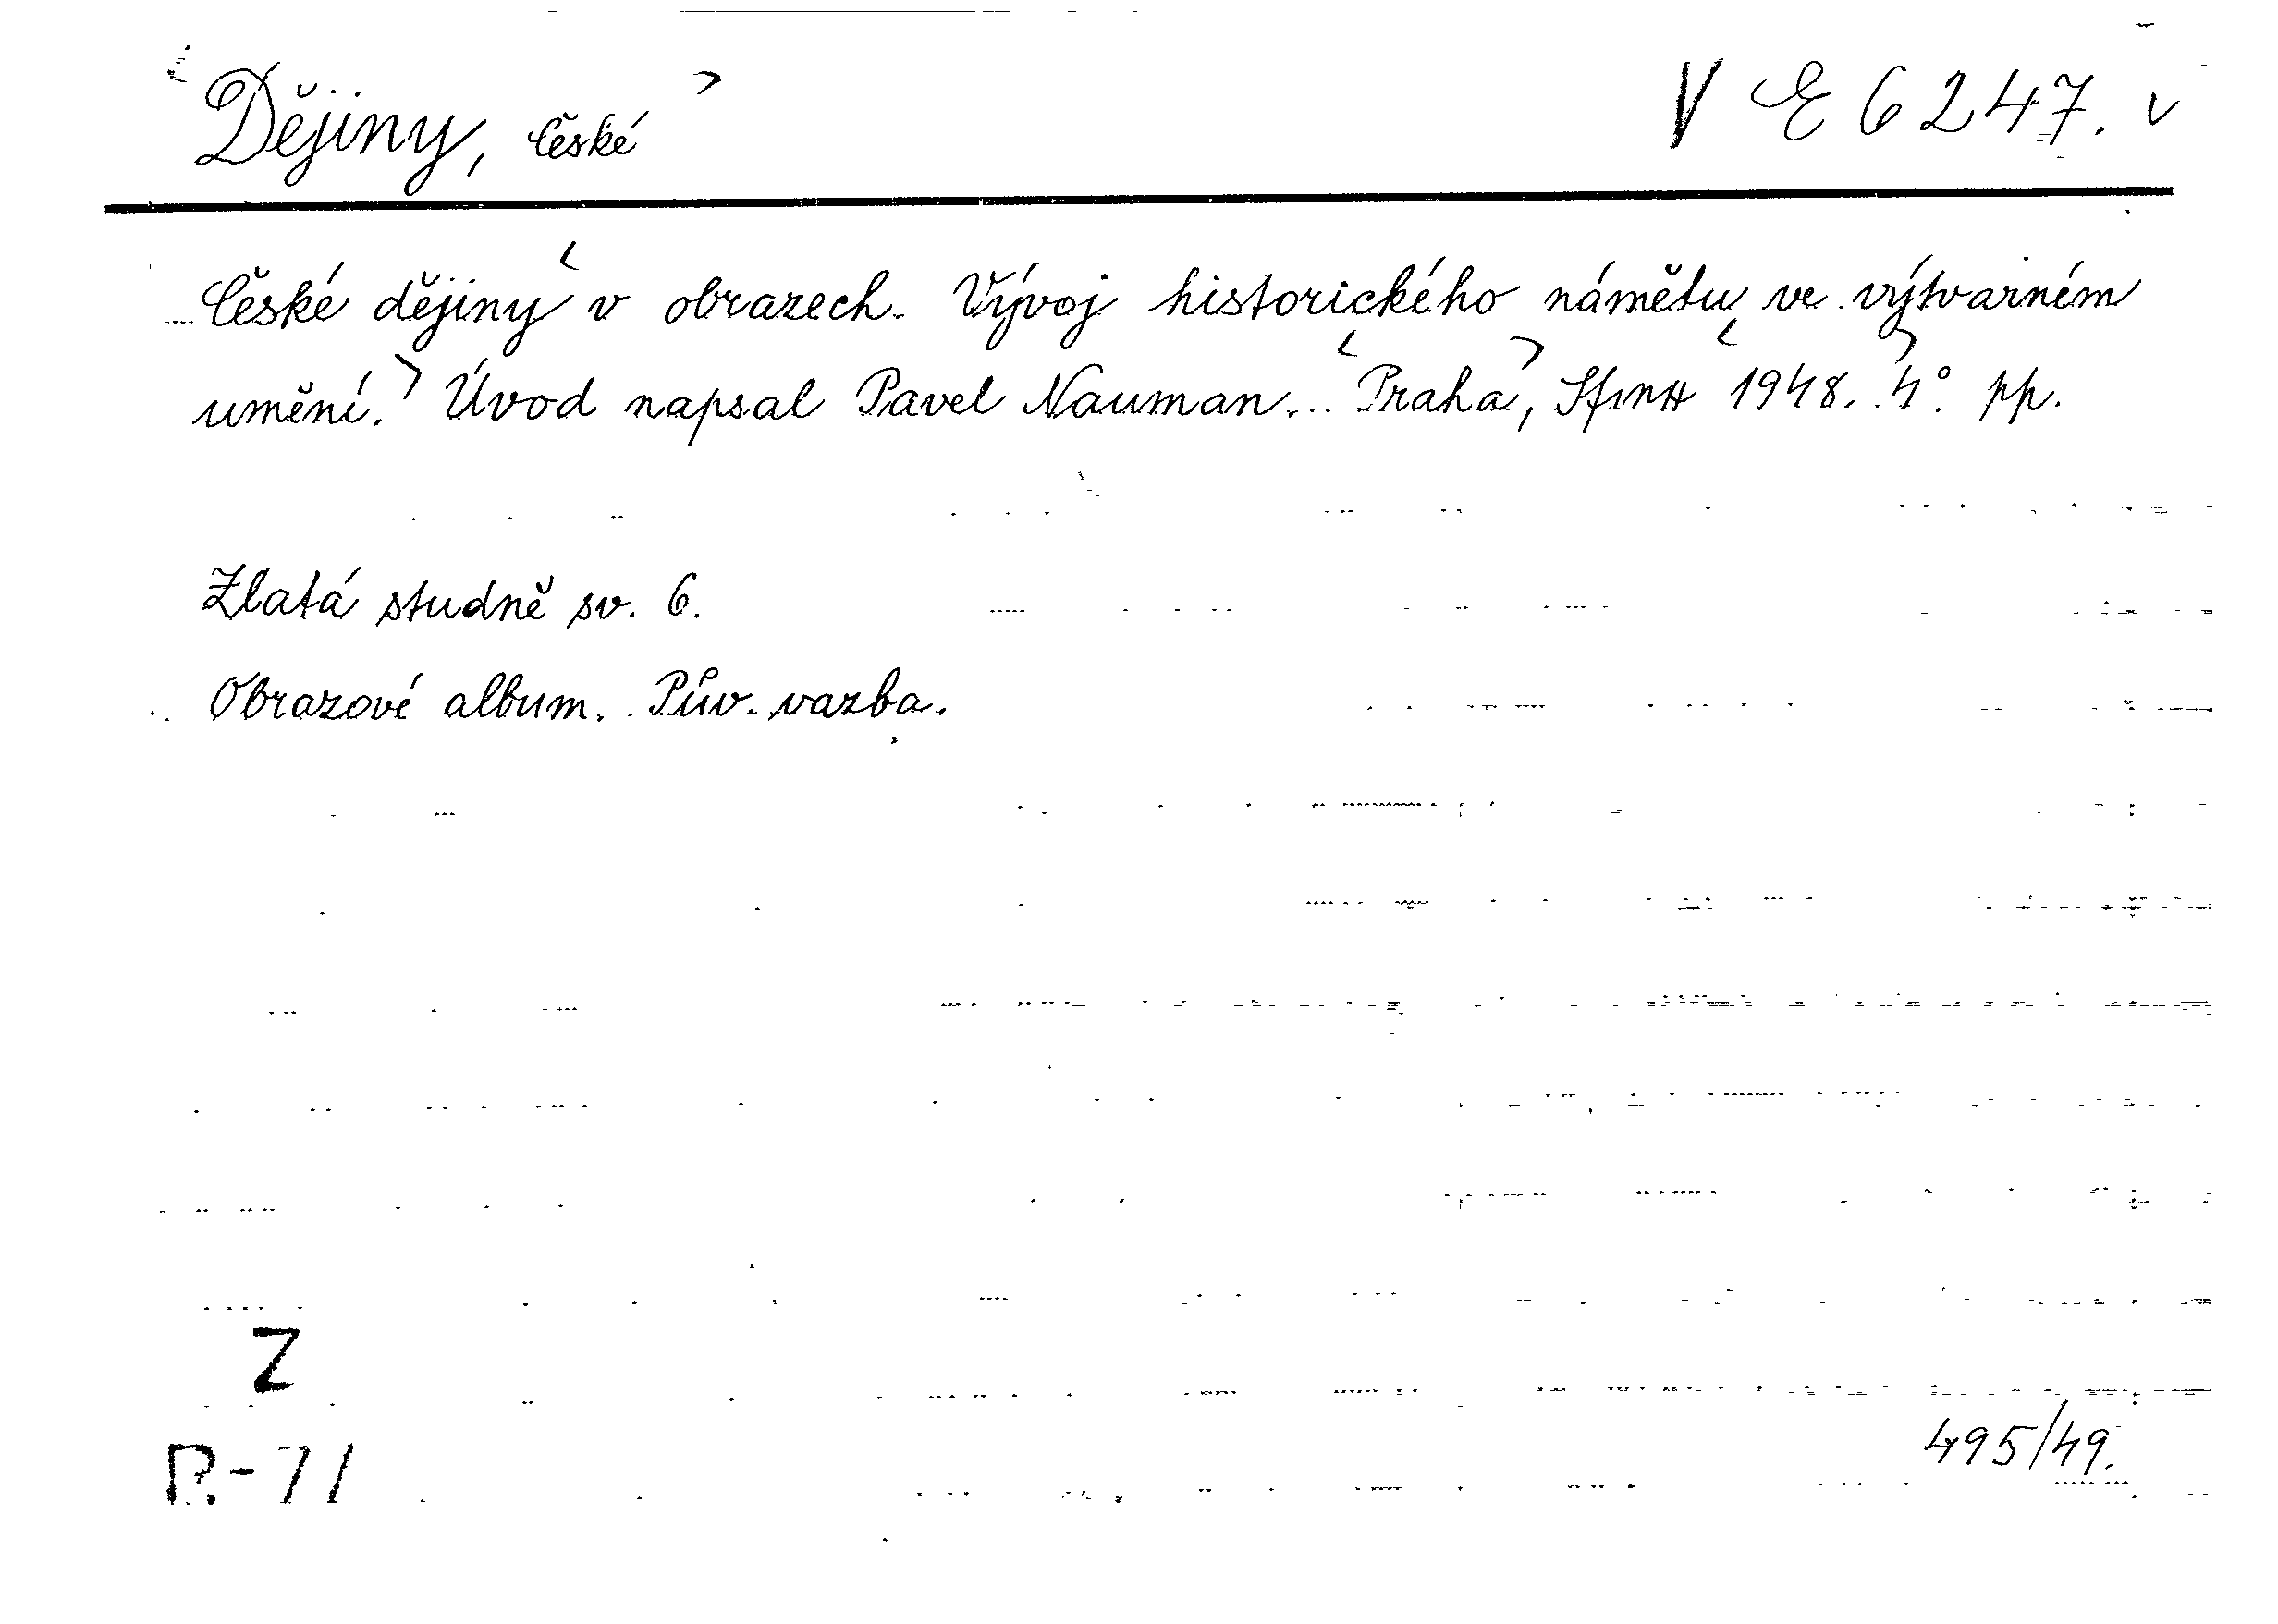 Dějiny, České V E 6247. v
České dějiny v obrazech. Vývoj historického námětu ve výtvarném
umění. Úvod napsal Pavel Nauman. Praha, Sfinx 1948. 4° pp.
Zlatá studně sv. 6.
Obrazové album. Pův. vazba.
Z
P.-71
495/49.